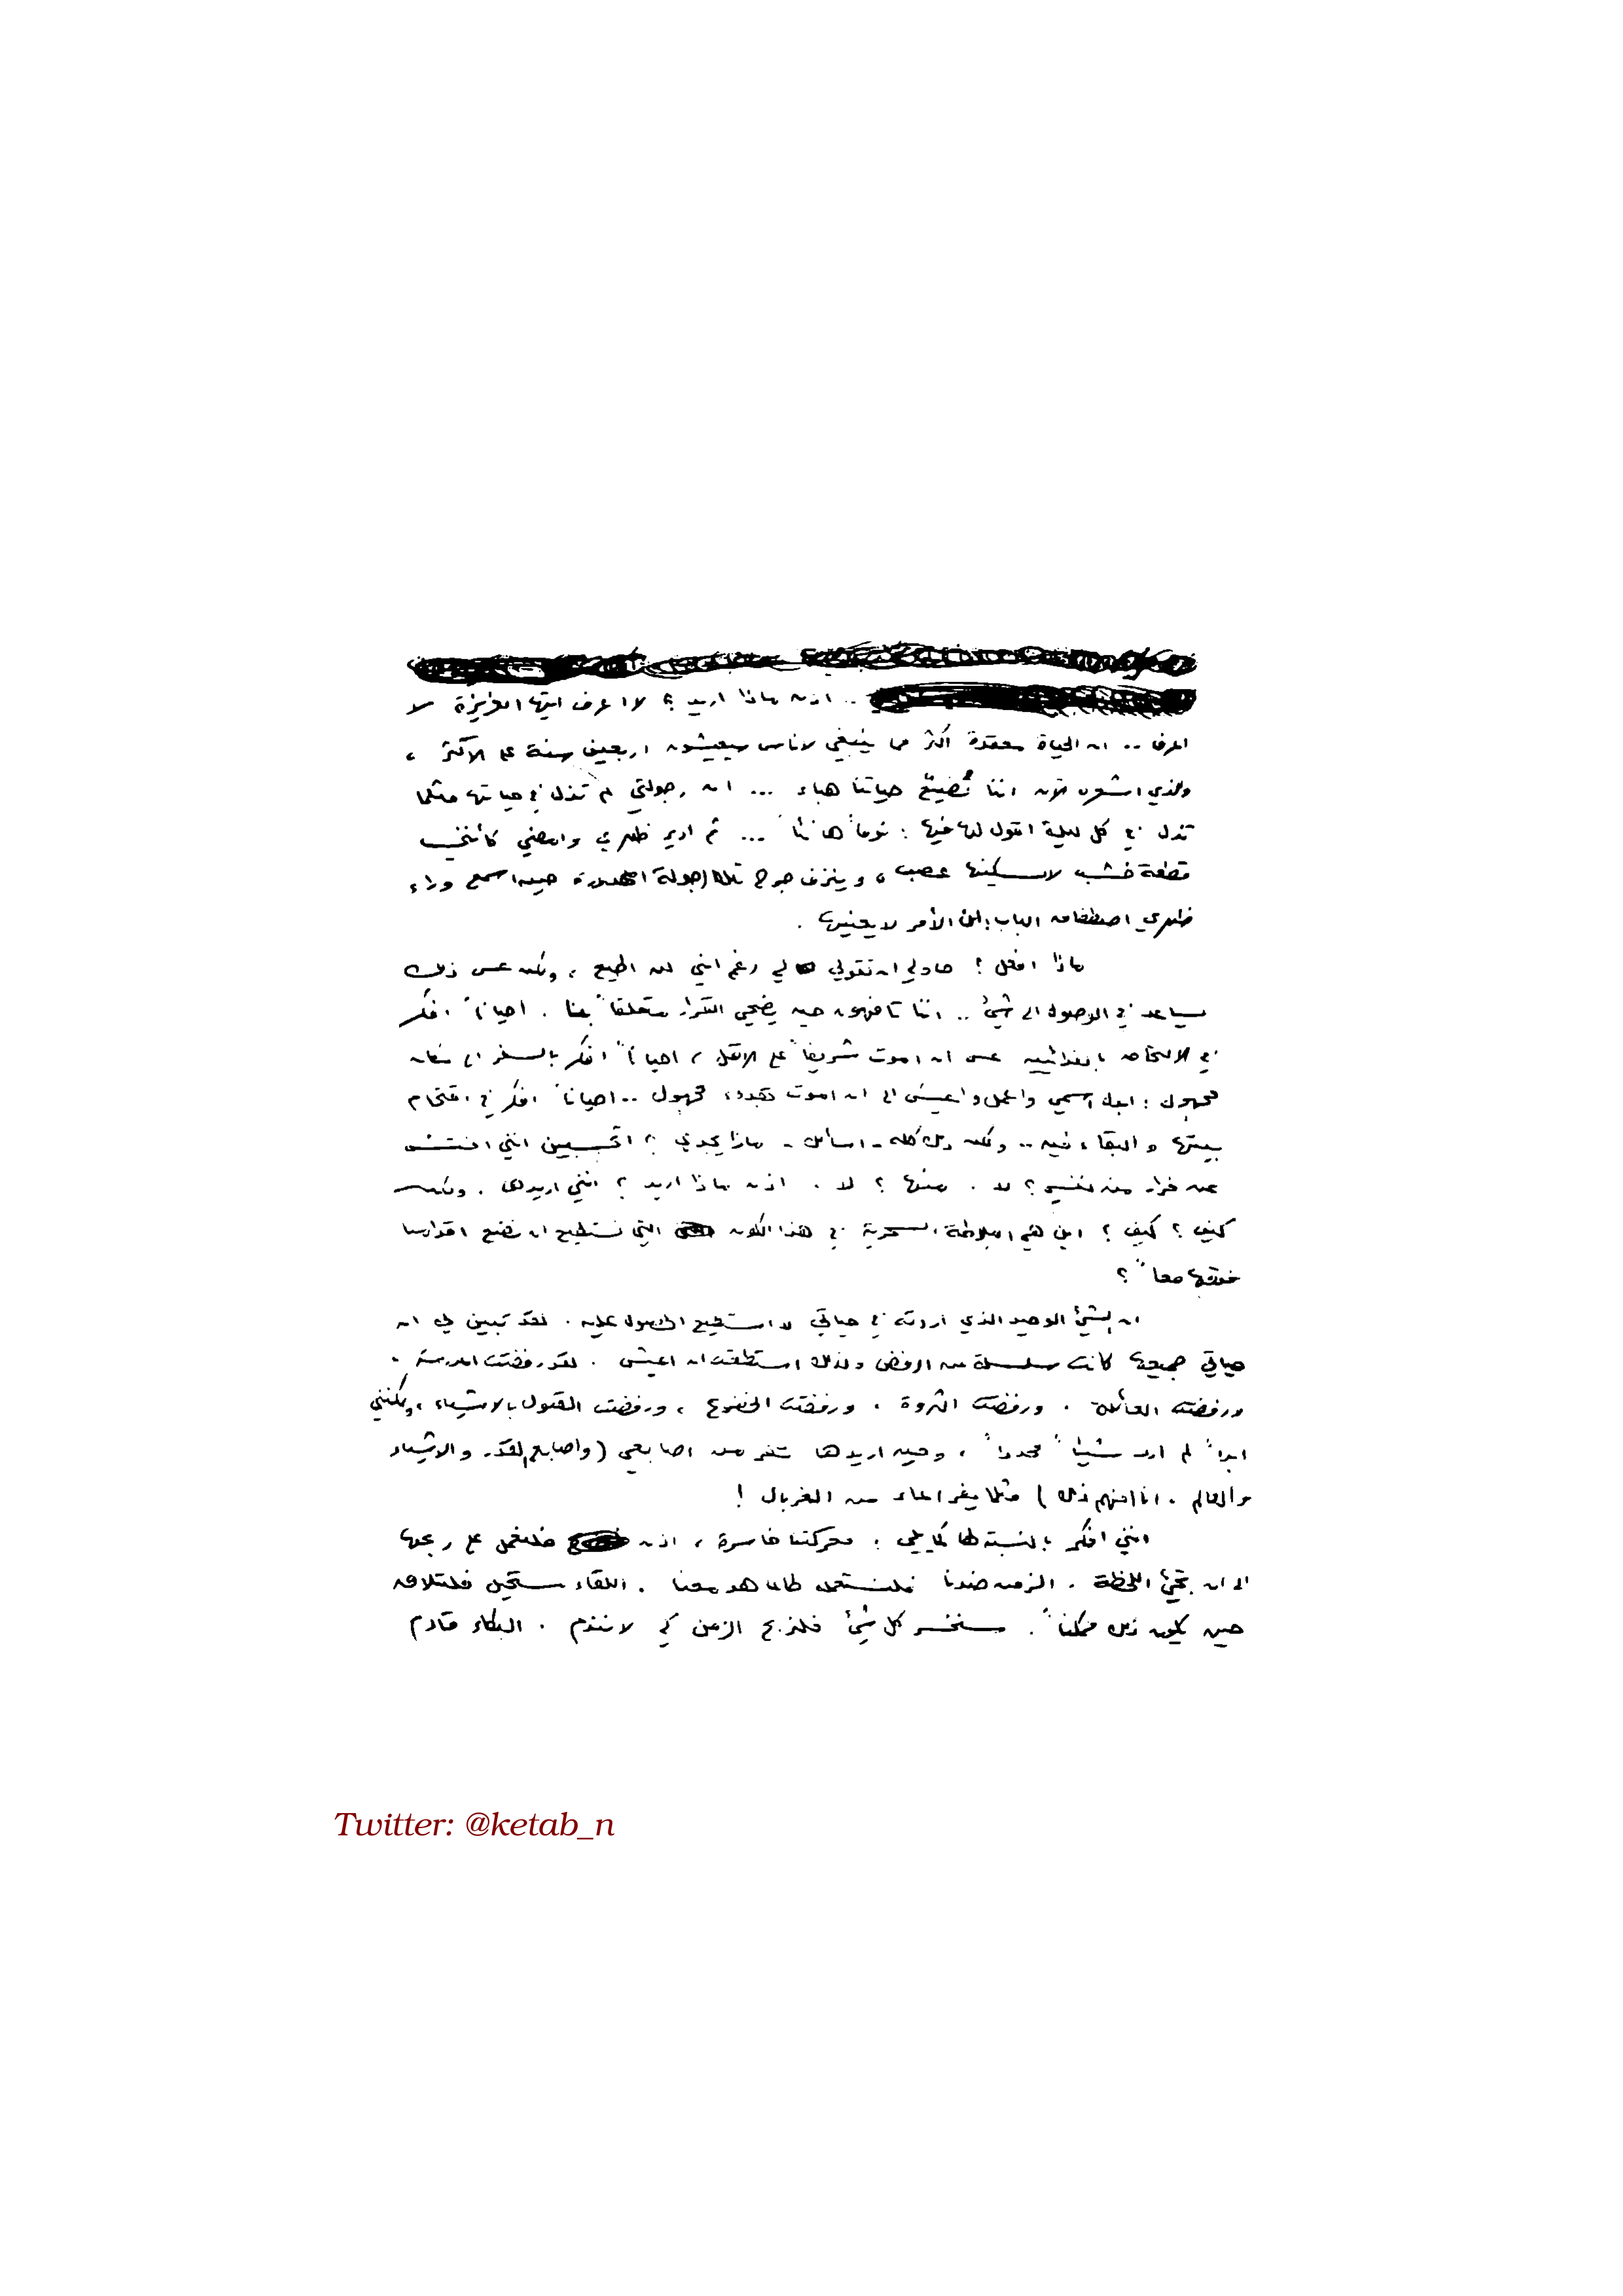 .. اذن ماذا اريد ؟ لا اعرف ايتها العزيزة لا
اعرف .. ان الحياة معقدة اكثر مما ينبغي لاناس سيعيشون اربعين سنة على الاكثر ،
والذي اشعره الآن اننا نُضيّع حياتنا هباء ... ان رجولتي لم تذل في حياتها مثلما
تذل في كل ليلة اقول لها فيها : نوماً هانئاً ... ثم ادير ظهري وامضي كأنني
قطعة خشب لا يسكنها عصب ، وينزف جرح تلك الرجولة حين اسمع وراء
ظهري اصطفاق الباب : الأمر لا يعنيها .
ماذا افعل ؟ حاولي ان تقولي لي رغم انني لن اطيع ، ولكن عسى ذلك
يساعد في الوصول الى شيء .. اننا تافهون حين يضحي القرار متعلقاً بنا . احياناً افكر
في الالتحاق بالفدائيين عسى ان اموت شريفاً على الاقل ، احياناً افكر بالسفر الى مكان
مجهول : ابدل اسمي واعمل واعيش الى ان اموت مجهول .. احياناً افكر في اقتحام
بيتها والبقاء فيه .. ولكن ذلك كله - اسألك - ماذا يجدي ؟ اتحسبين انني افتش
عن فرار من نفسي ؟ لا . منها ؟ لا . اذن ماذا اريد ؟ انني اريدها . ولكن
كيف ؟ كيف ؟ اين هي البلاطة السحرية في هذا الكون التي نستطيع ان نضع اقدامنا
فوقها معاً ؟
ان الشيء الوحيد الذي اردته في حياتي لا استطيع الحصول عليه . لقد تبين لي ان
حياتي جميعها كانت سلسلة من الرفض ولذلك استطعت ان اعيش . لقد رفضت المدرسة .
ورفضت العائلة . ورفضت الثروة . ورفضت الخضوع ، ورفضت القبول بالاشياء ، ولكنني
ابداً لم ارد شيئاً محدداً ، وحين اريدها تفر من اصابعي (واصابع القدر والاشياء
والعالم . انا افهم ذلك ) مثلما يفر الماء من الغربال !
انني افكر بالنسبة لها كما يلي : معركتنا خاسرة ، اذن فلنعمل على ربحها
الى ان تجيء اللحظة . الزمن ضدنا فلنستعمله طالما هو معنا . اللقاء مستحيل فلنتلاقه
حين يكون ذلك ممكناً . سنخسر كل شيء فلنربح الزمن كي لا نندم . البكاء قادم
Twitter: @ketab_n